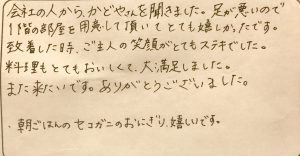 会社の人から、かどやさんを聞きました。足が悪いので
1階の部屋を用意して頂いてとても嬉しかったです。
到着した時、ご主人の笑顔がとてもステキでした。
料理もとてもおいしくて、大満足しました。
また来たいです。ありがとうございました。
・朝ごはんのセコガニのおにぎり、嬉しいです。